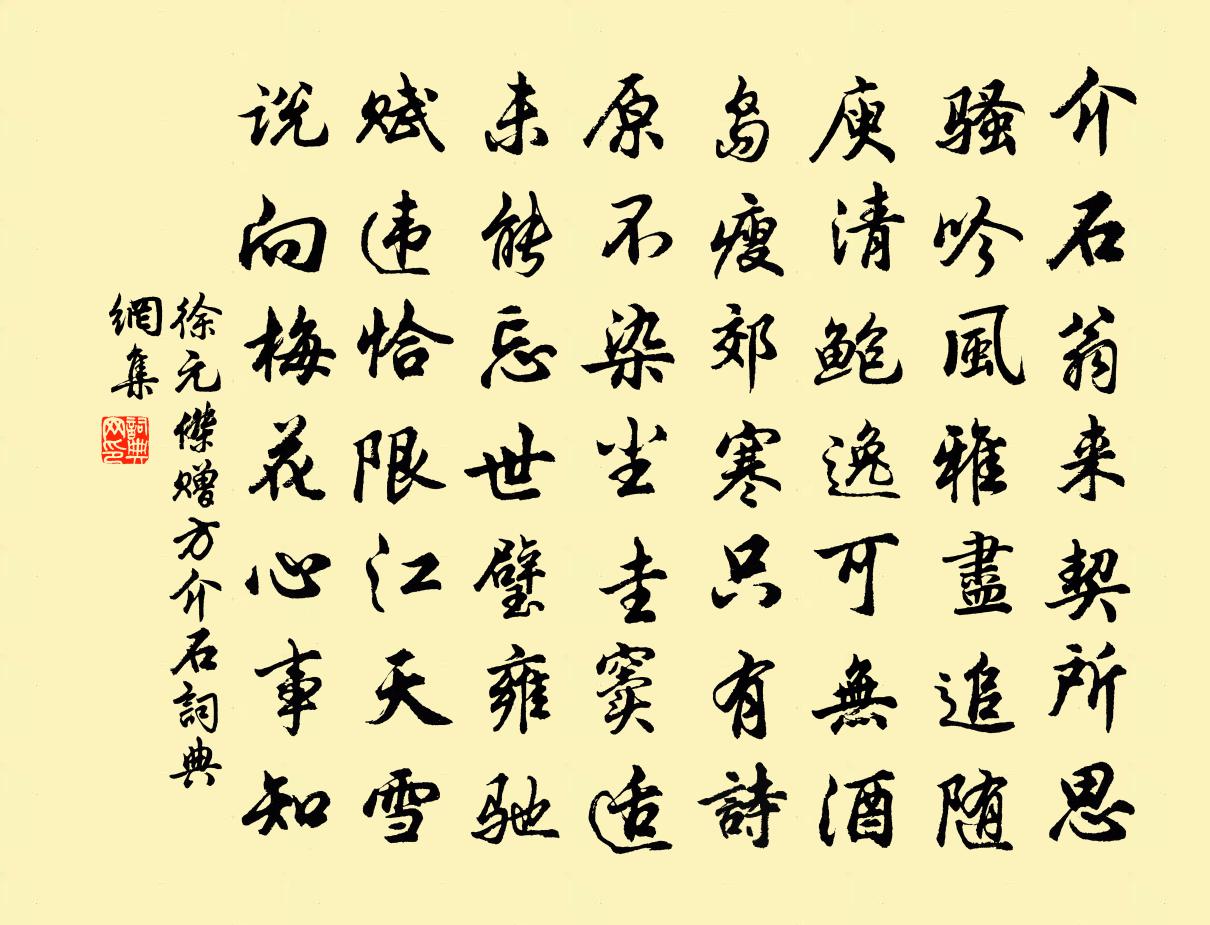 介石翁来契所思
骚吟風雅盡追随
庾清鲍逸可無酒
島瘦郊寒只有詩
原不染尘圭窦适
未能忘世璧雍驰
赋违恰限江天雪
说向梅花心事知
徐元傑赠方介石詞典
網集
詞典
网印